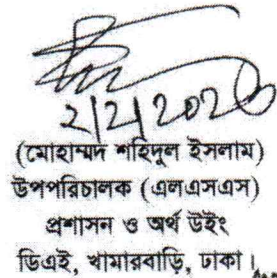 2/2/2026
(মোহাম্মদ শহিদুল ইসলাম)
উপপরিচালক (এলএসএস)
প্রশাসন ও অর্থ উইং
ডিএই, খামারবাড়ি, ঢাকা।